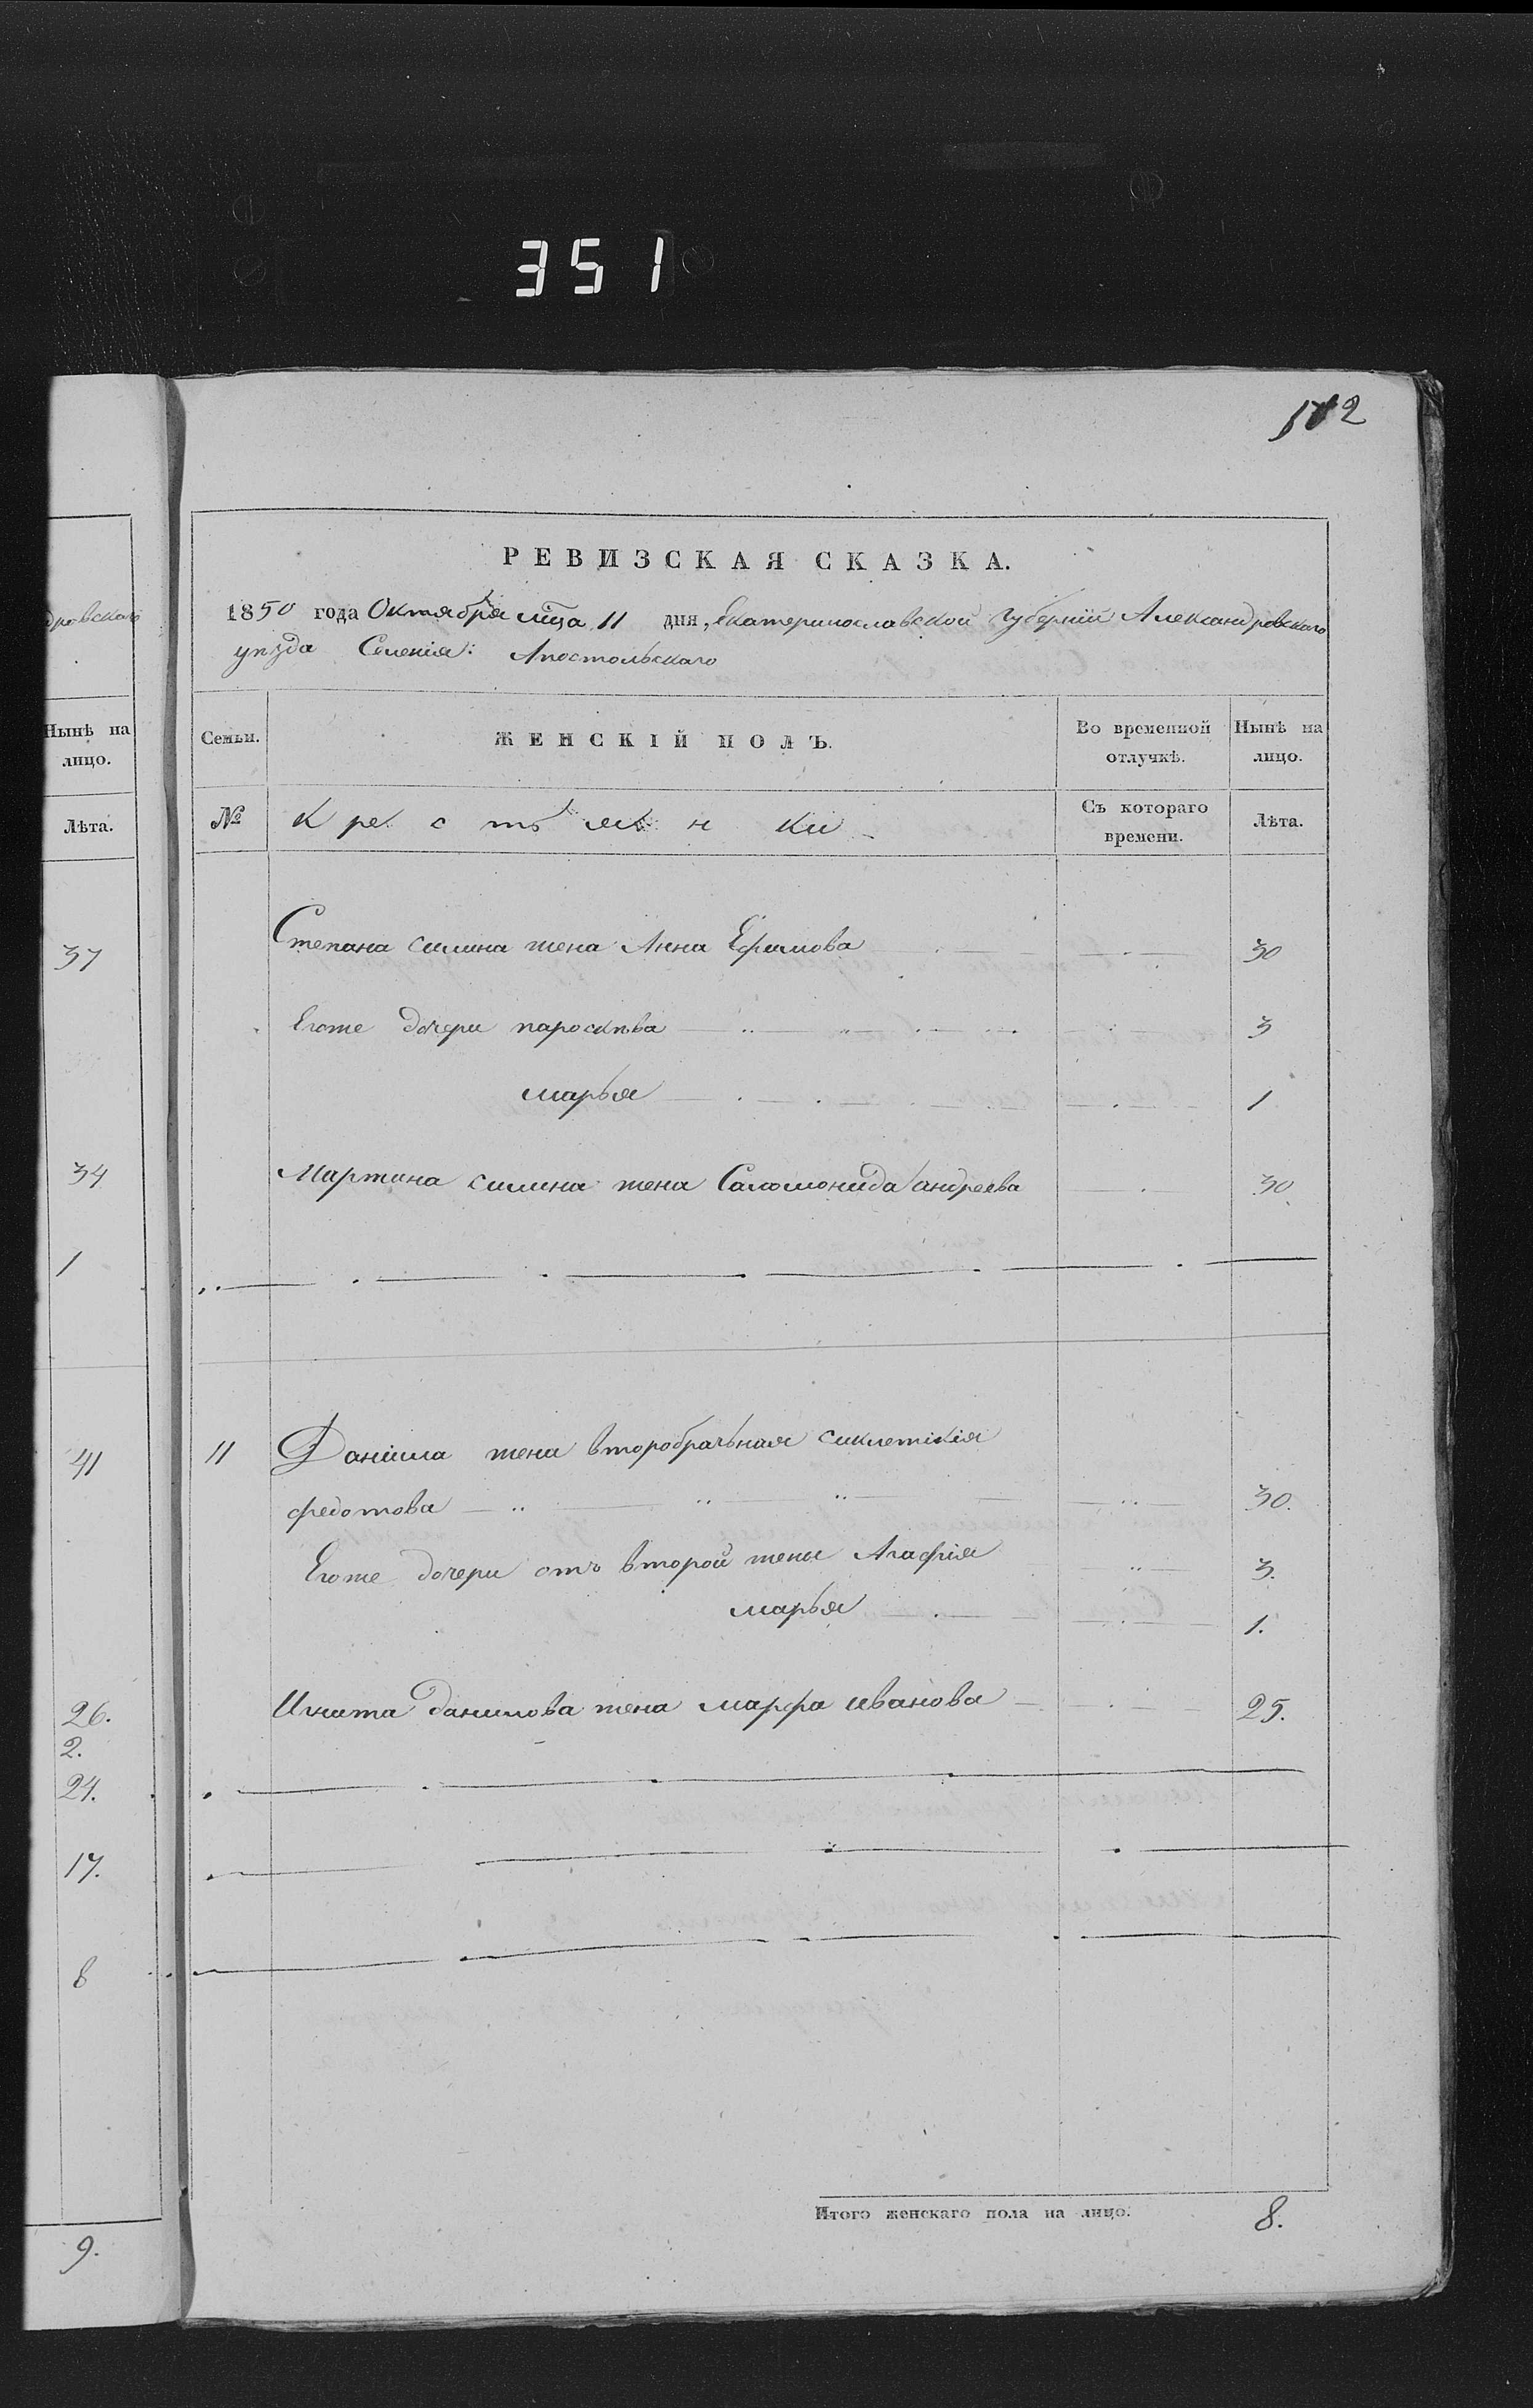 351
102
РЕВИЗСКАЯ СКАЗКА.
1850 года Октября мца 11 дня, Екатеринославской Губернии Александровскаго
уѣзда Селенія: Апостольскаго
дровскаго
Нынѣ на
лицо.
Лѣта.
37
34
1
41
26.
2.
24.
17.
8
9.
Семьи.
ЖЕНСКІЙ ПОЛЪ.
Во временной
отлучкѣ.
Нынѣ на
лицо.
№
Крестьянки
Съ котораго
времени.
Лѣта.
Степана силина жена Анна Ефимова 30
Егоже дочери параскѣва 3
марья 1
Мартина силина жена Саломонида андреева 30
11 Даніила жена второбрачьная сиклетікія
федотова 30.
Егоже дочери отъ второй жены Агафія 3.
марья 1.
Игната данилова жена марфа иванова 25.
Итого женскаго пола на лицо. 8.